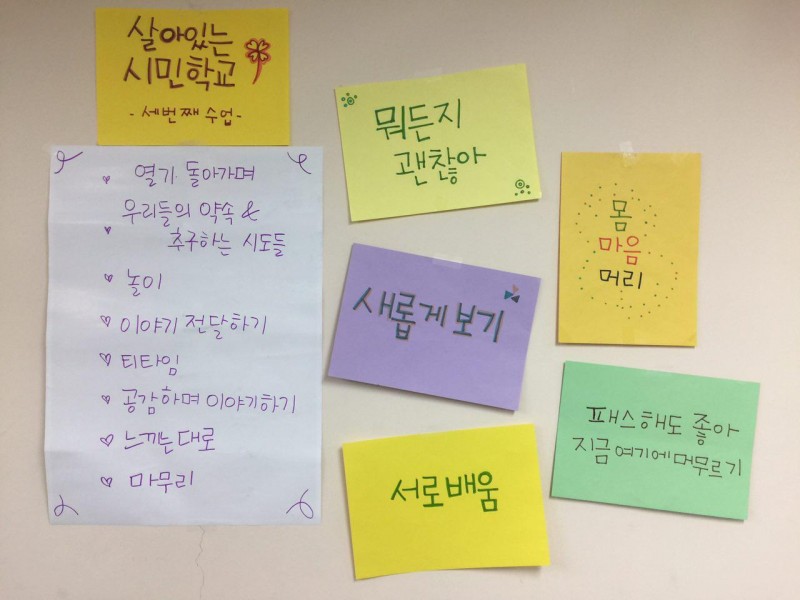 살아있는
시민학교
- 세번째 수업 -
열기. 돌아가며
우리들의 약속 &
추구하는 시도들
놀이
이야기 전달하기
티타임
공감하며 이야기하기
느끼는대로
마무리
뭐든지
괜찮아
새롭게 보기
서로배움
몸
마음
머리
패스해도 좋아
지금 여기에 머무르기